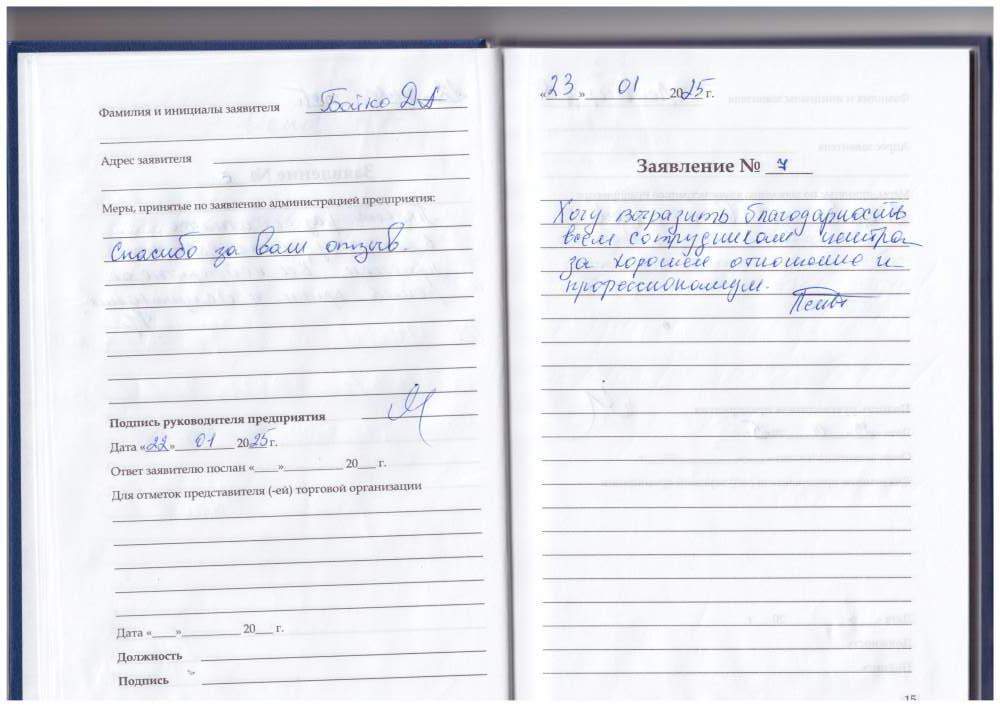 Фамилия и инициалы заявителя Бойко ДА
Адрес заявителя
Меры, принятые по заявлению администрацией предприятия:
Спасибо за Ваш отзыв.
Подпись руководителя предприятия
Дата «22» 01 2025 г.
Ответ заявителю послан «____»__________ 20___ г.
Для отметок представителя (-ей) торговой организации
Дата «____»__________ 20___ г.
Должность
Подпись
«23» 01 2025 г.
Заявление № 7
Хочу выразить благодарность
всем сотрудникам центра
за хорошее отношение и
профессионализм.
15